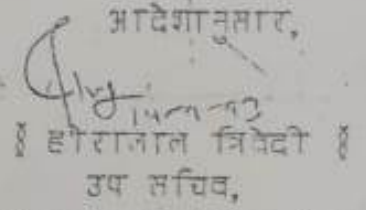 आदेशानुसार,
§ हीरालाल त्रिवेदी §
उप सचिव,